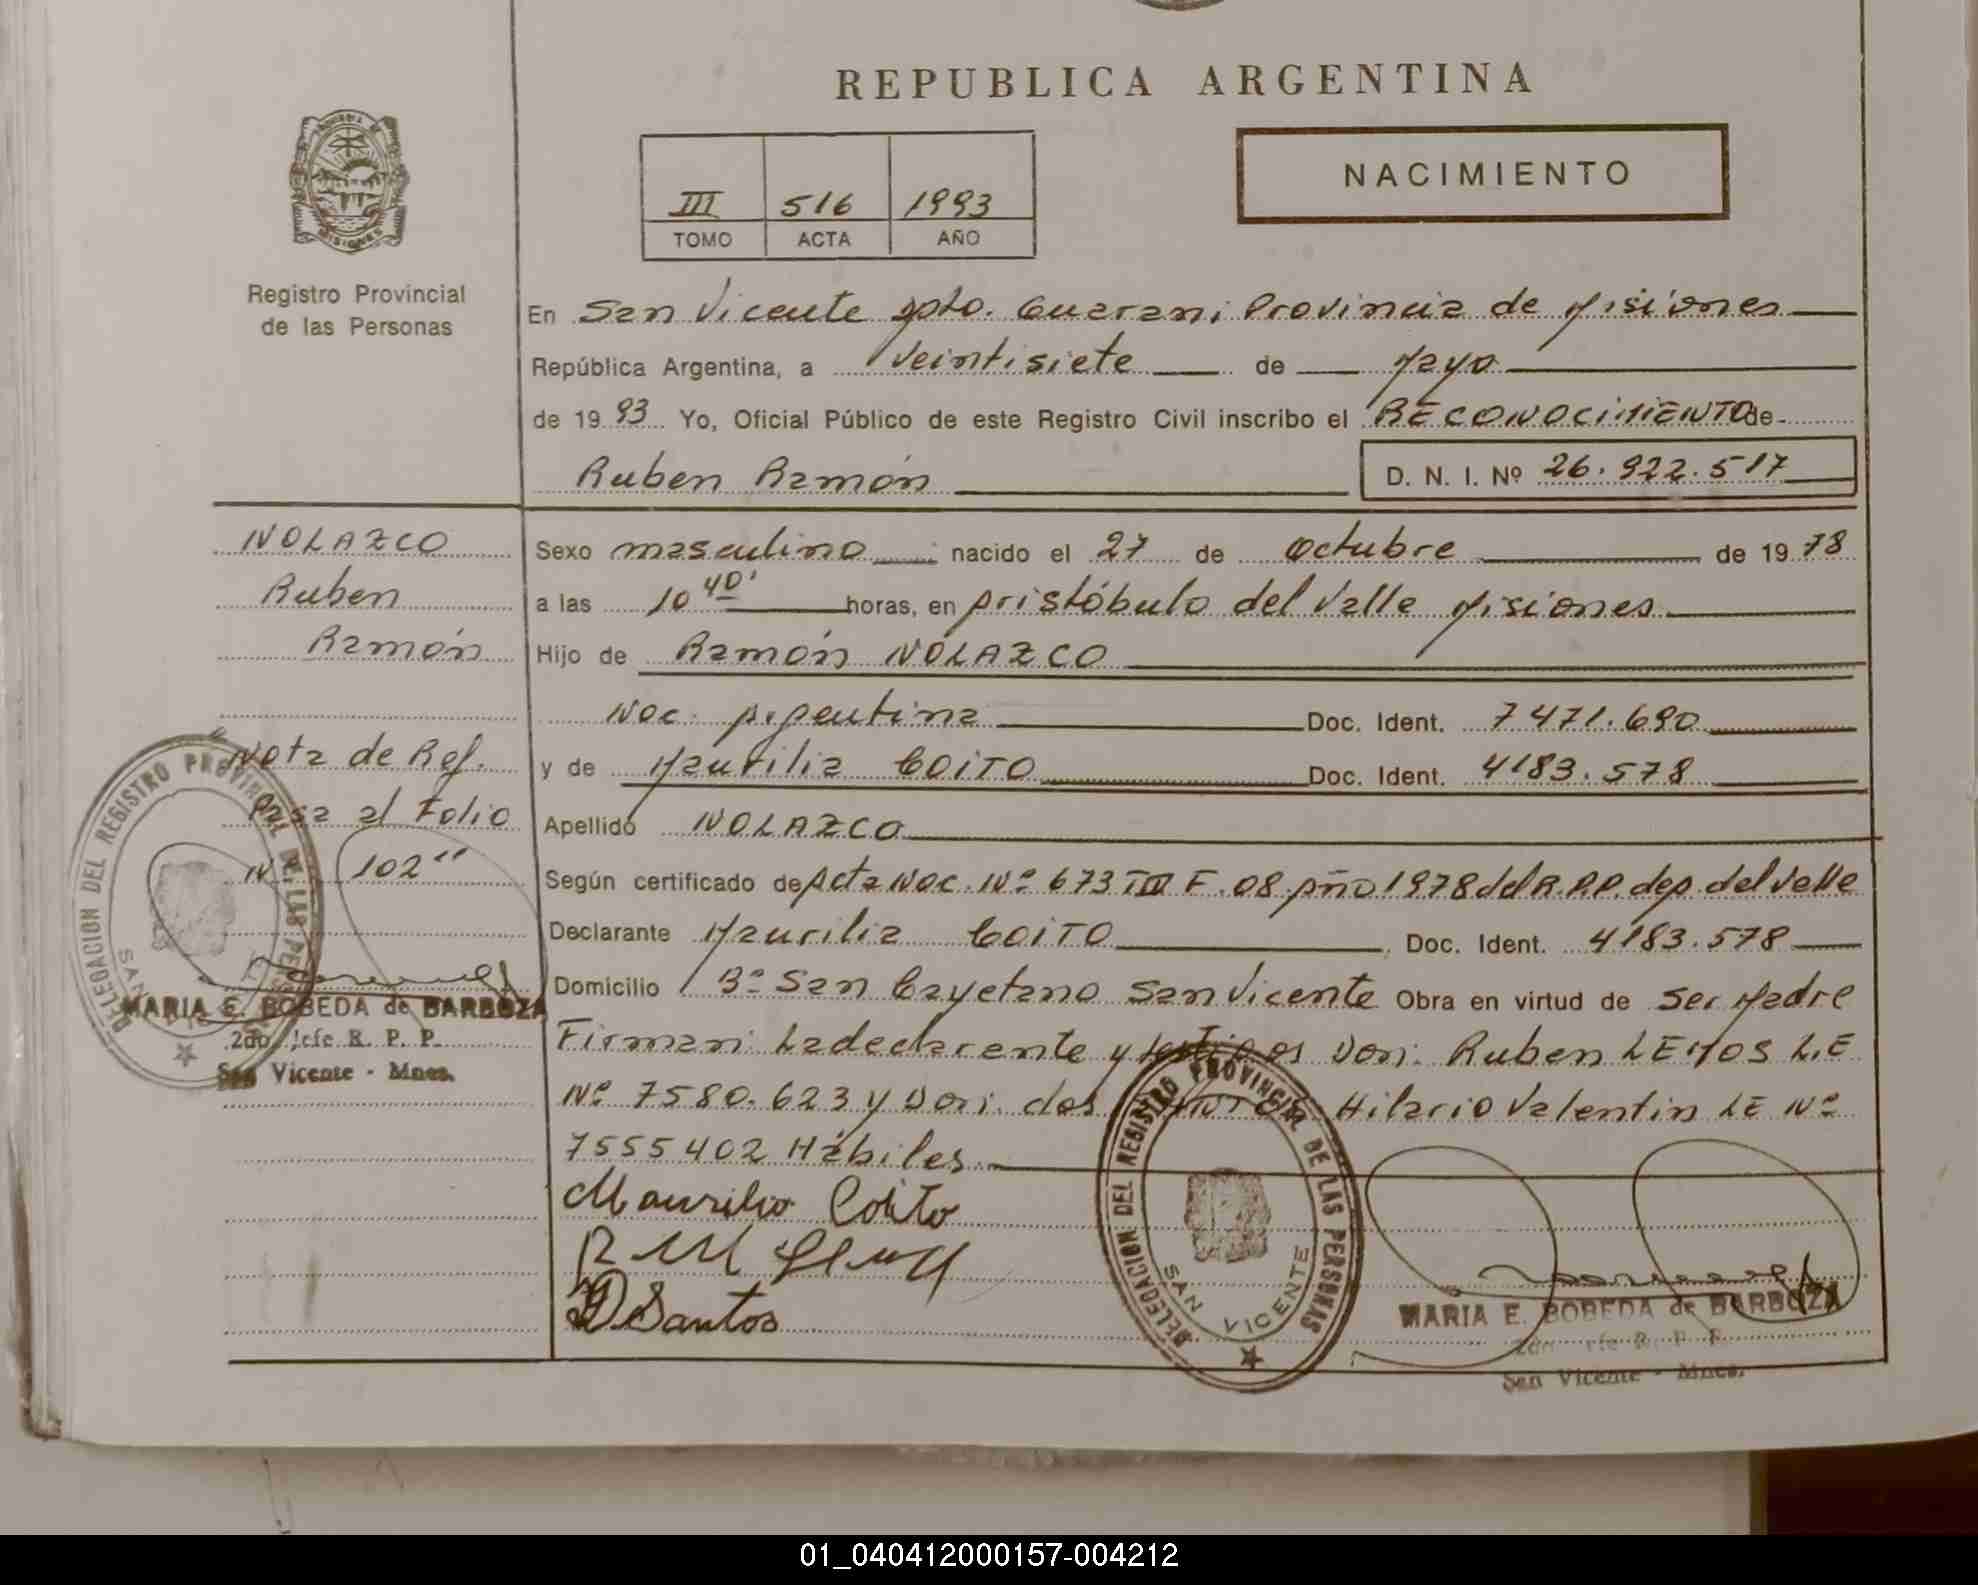 REPUBLICA ARGENTINA
NACIMIENTO
III 516 1993
TOMO ACTA AÑO
Registro Provincial
de las Personas
En San Vicente Dpto. Guarani Provincia de Misiones
República Argentina, a Veintisiete de Mayo
de 1993 Yo, Oficial Público de este Registro Civil inscribo el RECONOCIMIENTO de
Ruben Ramón D. N. I. Nº 26.922.517
NOLAZCO
Ruben
Ramón
"Nota de Ref.
Pasa al Folio
Nº 102"
MARIA E. BOBEDA de BARBOZA
2do. Jefe R. P. P.
San Vicente - Mnes.
DELEGACION DEL REGISTRO PROVINCIAL DE LAS PERSONAS
SAN VICENTE
Sexo masculino nacido el 27 de Octubre de 1978
a las 10 40' horas, en Aristóbulo del Valle Misiones
Hijo de Ramón NOLAZCO
Nac. Argentina Doc. Ident. 7471.690
y de Maurilia COITO Doc. Ident. 4183.578
Apellido NOLAZCO
Según certificado de Acta Nac. Nº 673 TIII F. 08 Año 1978 del R.P.P. dep. del Valle
Declarante Maurilia COITO Doc. Ident. 4183.578
Domicilio Bº San Cayetano San Vicente Obra en virtud de ser Madre
Firman: La declarante y testigos Don: Ruben LEMOS L.E
Nº 7580.623 y Don: dos SANTOS Hilario Valentin LE Nº
7555402 Hábiles.
Maurilio Coito
D Santos
DELEGACION DEL REGISTRO PROVINCIAL DE LAS PERSONAS
SAN VICENTE
MARIA E. BOBEDA de BARBOZA
2do. Jefe R. P. P.
San Vicente - Mnes.
01_040412000157-004212